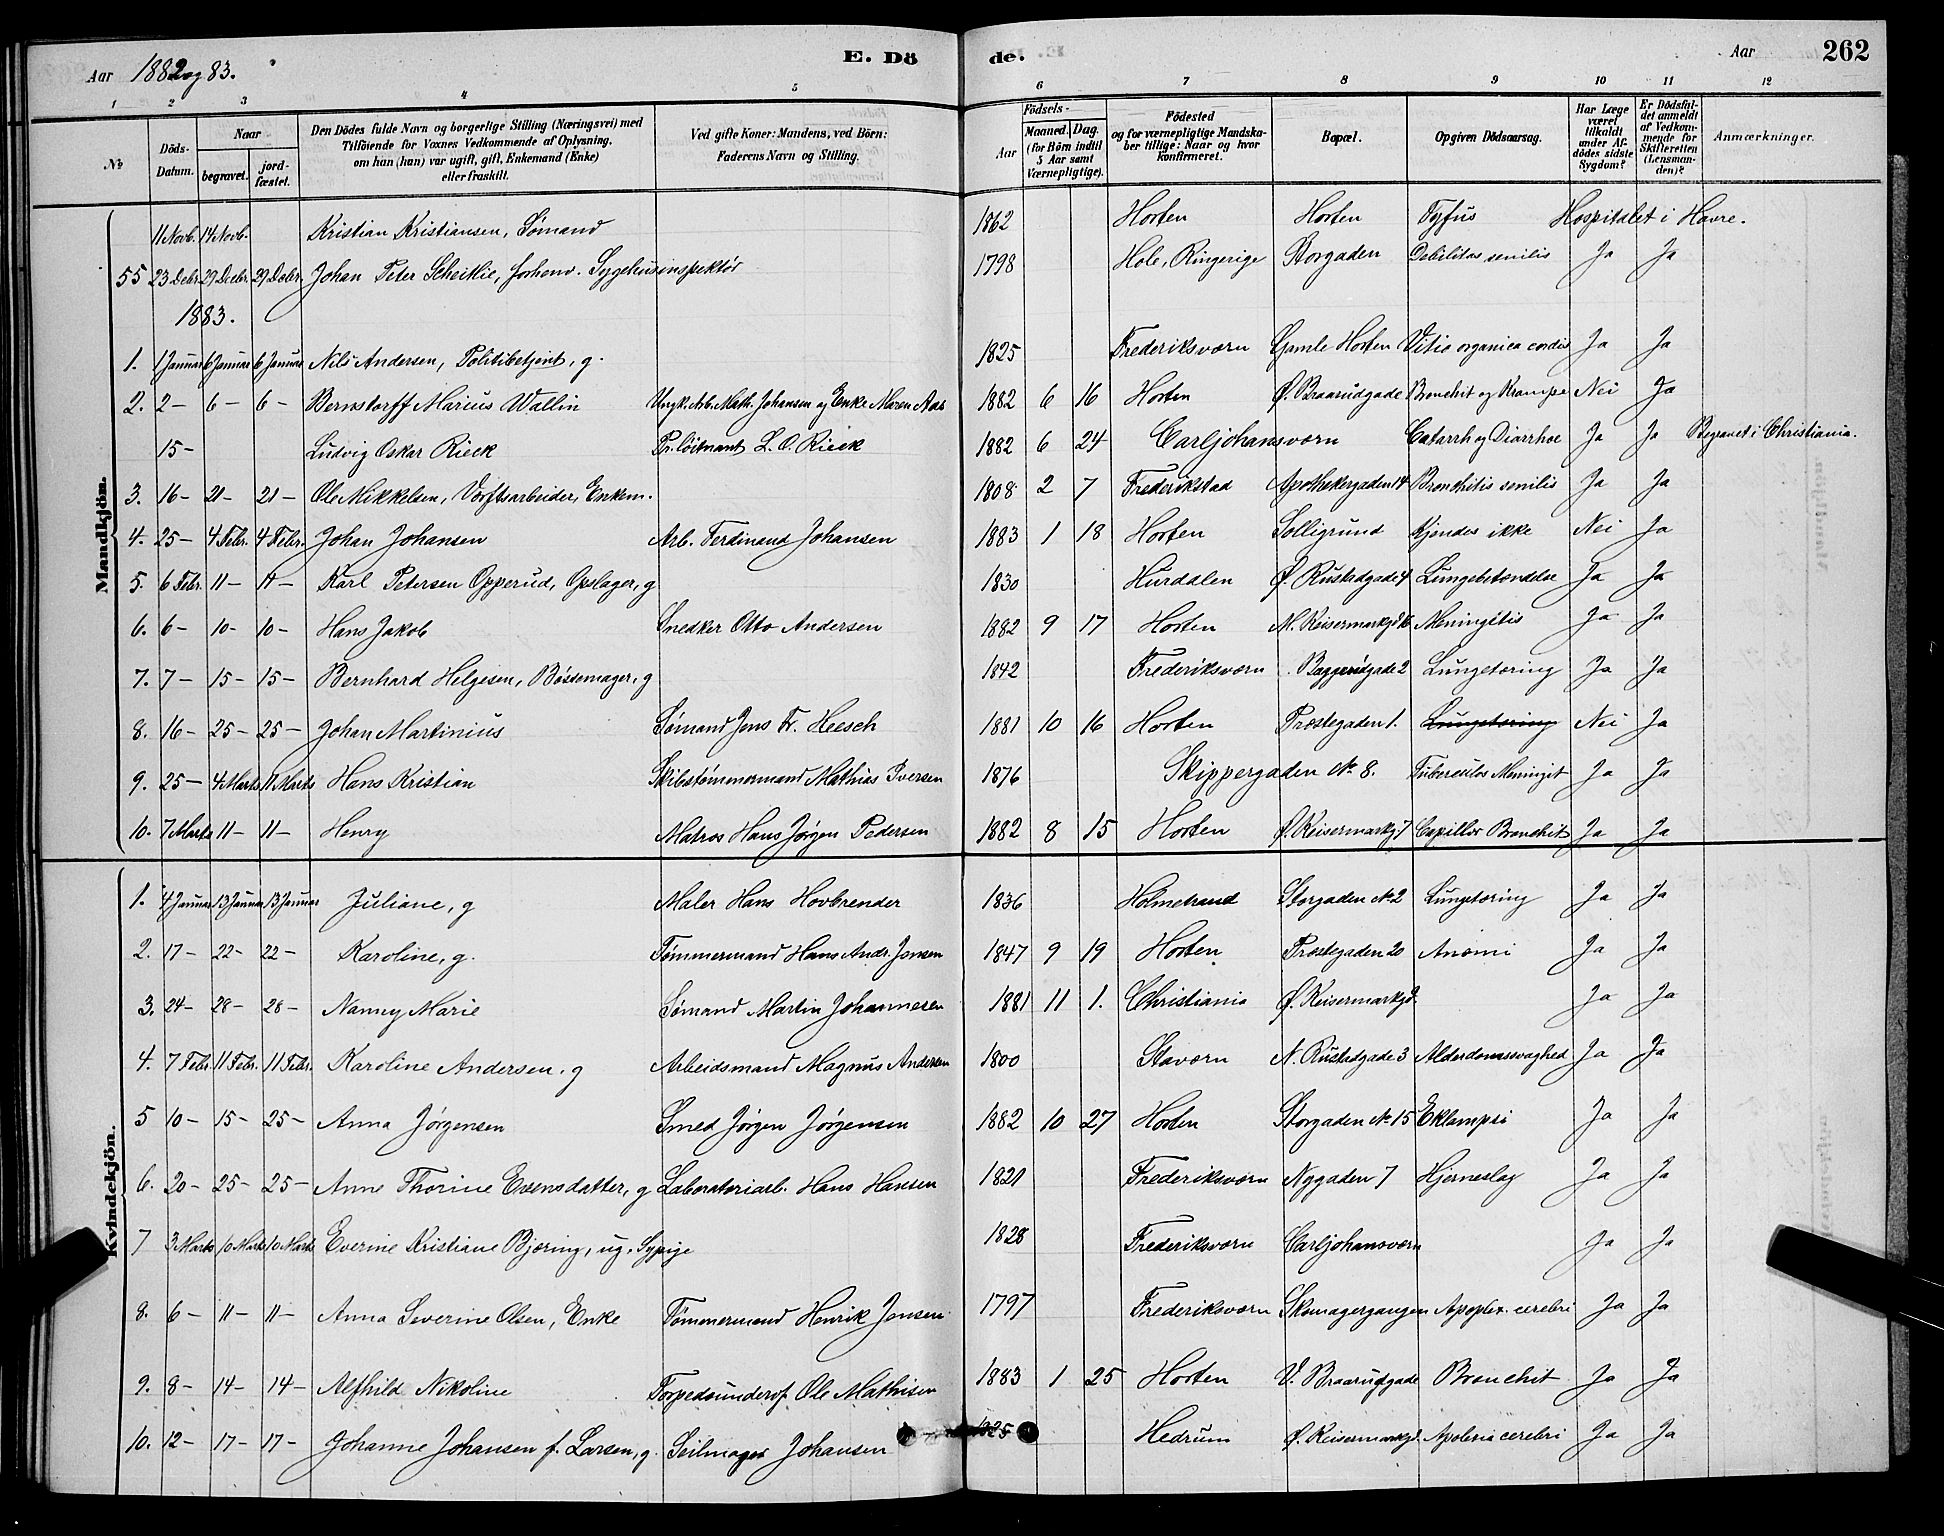 Aar 1882 og 83. E. Dö de. Aar 262
1 2 3 4 5 6 7 8 9 10 11 12
No
Döds-Datum.
Naar begravet. jord-fæstet.
Den Dödes fulde Navn og borgerlige Stilling (Næringsvei) med Tilföiende for Voxnes Vedkommende af Oplysning, om han (hun) var ugift, gift, Enkemand (Enke) eller fraskilt.
Ved gifte Koner: Mandens, ved Börn: Faderens Navn og Stilling.
Födsels-
Aar Maaned. Dag. (for Börn indtil 5 Aar samt Værnepligtige).
Födested og for værnepligtige Mandskaber tillige: Naar og hvor konfirmeret.
Bopæl.
Opgiven Dödsaarsag.
Har Læge været tilkaldt under Afdödes sidste Sygdom?
Er Dödsfaldet anmeldt af Vedkommende for Skifteretten (Lensmanden)?
Anmærkninger.
Mandkjön.
11 Novb. 14 Novb. Kristian Kristiansen, Sømand 1862 Horten Horten Tyfus Hospitalet i Havre.
55 23 Debr. 29 Decbr. 29 Decbr. Johan Peter Scheitlie, forhenv. Sygehusinspektör 1798 Hole, Ringerige Storgaden Debilitas senilis Ja Ja
1883.
1. 1 Januar 6 Januar 6 Januar Nils Andersen, Politibetjent, g. 1825 Frederiksværn Gamle Horten Vitio organica cordis Ja Ja
2. 2 - 6 - 6 - Bernstorff Marius Wallin Ungk. Arb. Math. Johansen og Enke Maren Aas 1882 6 16 Horten Ø. Braarudgade Bronchit og Krampe Nei Ja
15 - Ludvig Oskar Rieck Pr. löitnant L. O. Rieck 1882 6 24 Carljohansværn Catarrh og Diarrhoe Ja Ja Begravet i Christiania.
3. 16 - 21 - 21 - Ole Mikkelsen, Værftsarbeider, Enkem. 1808 2 7 Frederikstad Apothekergaden 14 Bronchitis senilis Ja Ja
4. 25 - 4 Febr. 4 Febr. Johan Johansen Arb. Ferdinand Johansen 1883 1 18 Horten Solligrund Kjendes ikke Nei Ja
5. 6 Febr. 11 - 11 - Karl Petersen Opperud, Opslager, g 1830 Hurdalen Ø. Rustadgade 4 Lungebetændelse Ja Ja
6. 6 - 10 - 10 - Hans Jakob Snedker Otto Andersen 1882 9 17 Horten M. Keisermarkgd 16 Meningitis Ja Ja
7. 7 - 15 - 15 - Bernhard Helgesen, Bøssemager, g 1842 Frederiksværn Baggerødgade 2 Lungetæring Ja Ja
8. 16 - 25 - 25 - Johan Martinius Sømand Jens Fr. Heesch 1881 10 16 Horten Præstegaden 1. Lungetæring Nei Ja
9. 25 - 4 Marts 11 Marts Hans Kristian Skibstømmermand Mathias Iversen 1876 Skippergaden No 8. Tuberculos Meningit Ja Ja
10. 7 Marts 11 - 11 - Henry Matros Hans Jørgen Pedersen 1882 8 15 Horten Ø. Keisermarkg. 7 Capillær Bronchit Ja Ja
Kvindekjön.
1. 4 Januar 13 Januar 13 Januar Juliane, g Maler Hans Hovbrender 1836 Holmestrand Storgaden No 2 Lungetæring Ja Ja
2. 17 - 22 - 22 - Karoline, g. Tømmermand Hans Andr. Jensen 1847 9 19 Horten Præstegaden 20 Anæmi Ja Ja
3. 24 - 28 - 28 - Nanny Marie Sømand Martin Johannesen 1881 11 1. Christiania Ø. Keisermarkgd. Ja Ja
4. 7 Febr 11 Febr. 11 Febr. Karoline Andersen. g Arbeidsmand Magnus Andersen 1800 Stavern N. Rustadgade 3 Alderdomssvaghed Ja Ja
5 10 - 15 - 25 - Anna Jørgensen Smed Jørgen Jørgensen 1882 10 27 Horten Storgaden No 15 Eklampsi Ja Ja
6. 20 - 25 - 25 - Anne Thorine Evensdatter, g Laboratoriarb. Hans Hansen 1821 Frederiksværn Nygaden 7 Hjerneslag Ja Ja
7 3 Marts 10 Marts 10 Marts Everine Kristiane Bjæring, ug. Sypige 1828 Frederiksværn Carljohansværn Ja Ja
8. 6 - 11 - 11 - Anna Severine Olsen, Enke Tømmermand Henrik Jensen 1797 Frederiksværn Skomagergangen Apoplex. cerebri Ja Ja
9. 8 - 14 - 14 - Alfhild Nikoline Torpedounderof. Ole Mathisen 1883 1 25 Horten V. Braarudgade Bronchit Ja Ja
10. 12 - 17 - 17 - Johanne Johansen f. Larsen, g. Seilmager Johansen 1825 Hedrum Ø. Keisermarkgd. Apolexia cerebri Ja Ja